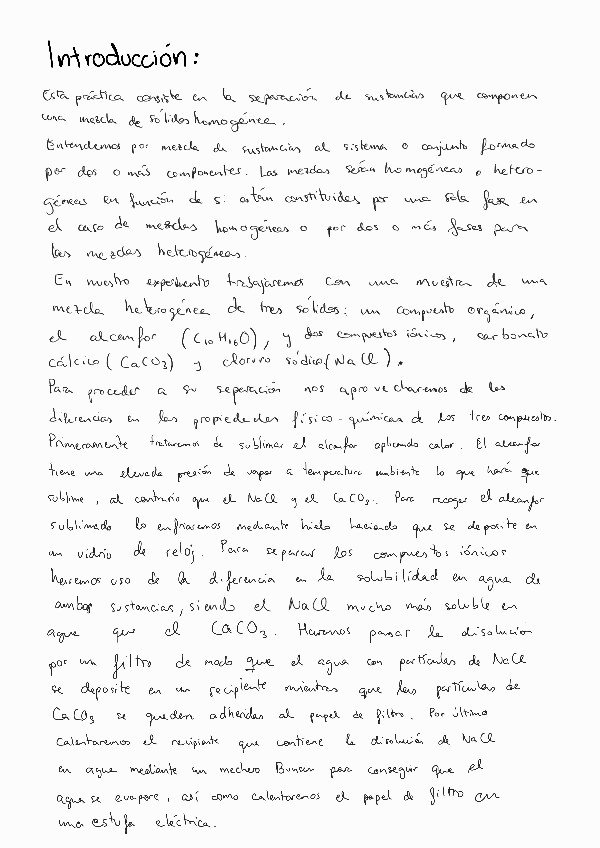 Introducción:
Esta práctica consiste en la separación de sustancias que componen
una mezcla de sólidos homogénea.
Entendemos por mezcla de sustancias al sistema o conjunto formado
por dos o más componentes. Las mezclas serán homogéneas o hetero-
géneas en función de si están constituidas por una sola fase en
el caso de mezclas homogéneas o por dos o más fases para
las mezclas heterogéneas.
En nuestro experimento trabajaremos con una muestra de una
mezcla heterogénea de tres sólidos: un compuesto orgánico,
el alcanfor (C₁₀H₁₆O), y dos compuestos iónicos, carbonato
cálcico (CaCO₃) y cloruro sódico (NaCl).
Para proceder a su separación nos aprovecharemos de las
diferencias en las propiedades físico-químicas de los tres compuestos.
Primeramente trataremos de sublimar el alcanfor aplicando calor. El alcanfor
tiene una elevada presión de vapor a temperatura ambiente lo que hará que
sublime, al contrario que el NaCl y el CaCO₃. Para recoger el alcanfor
sublimado lo enfriaremos mediante hielo haciendo que se deposite en
un vidrio de reloj. Para separar los compuestos iónicos
haremos uso de la diferencia en la solubilidad en agua de
ambas sustancias, siendo el NaCl mucho más soluble en
agua que el CaCO₃. Haremos pasar la disolución
por un filtro de modo que el agua con partículas de NaCl
se deposite en un recipiente mientras que las partículas de
CaCO₃ se queden adheridas al papel de filtro. Por último
calentaremos el recipiente que contiene la disolución de NaCl
en agua mediante un mechero Bunsen para conseguir que el
agua se evapore, así como calentaremos el papel de filtro en
una estufa eléctrica.